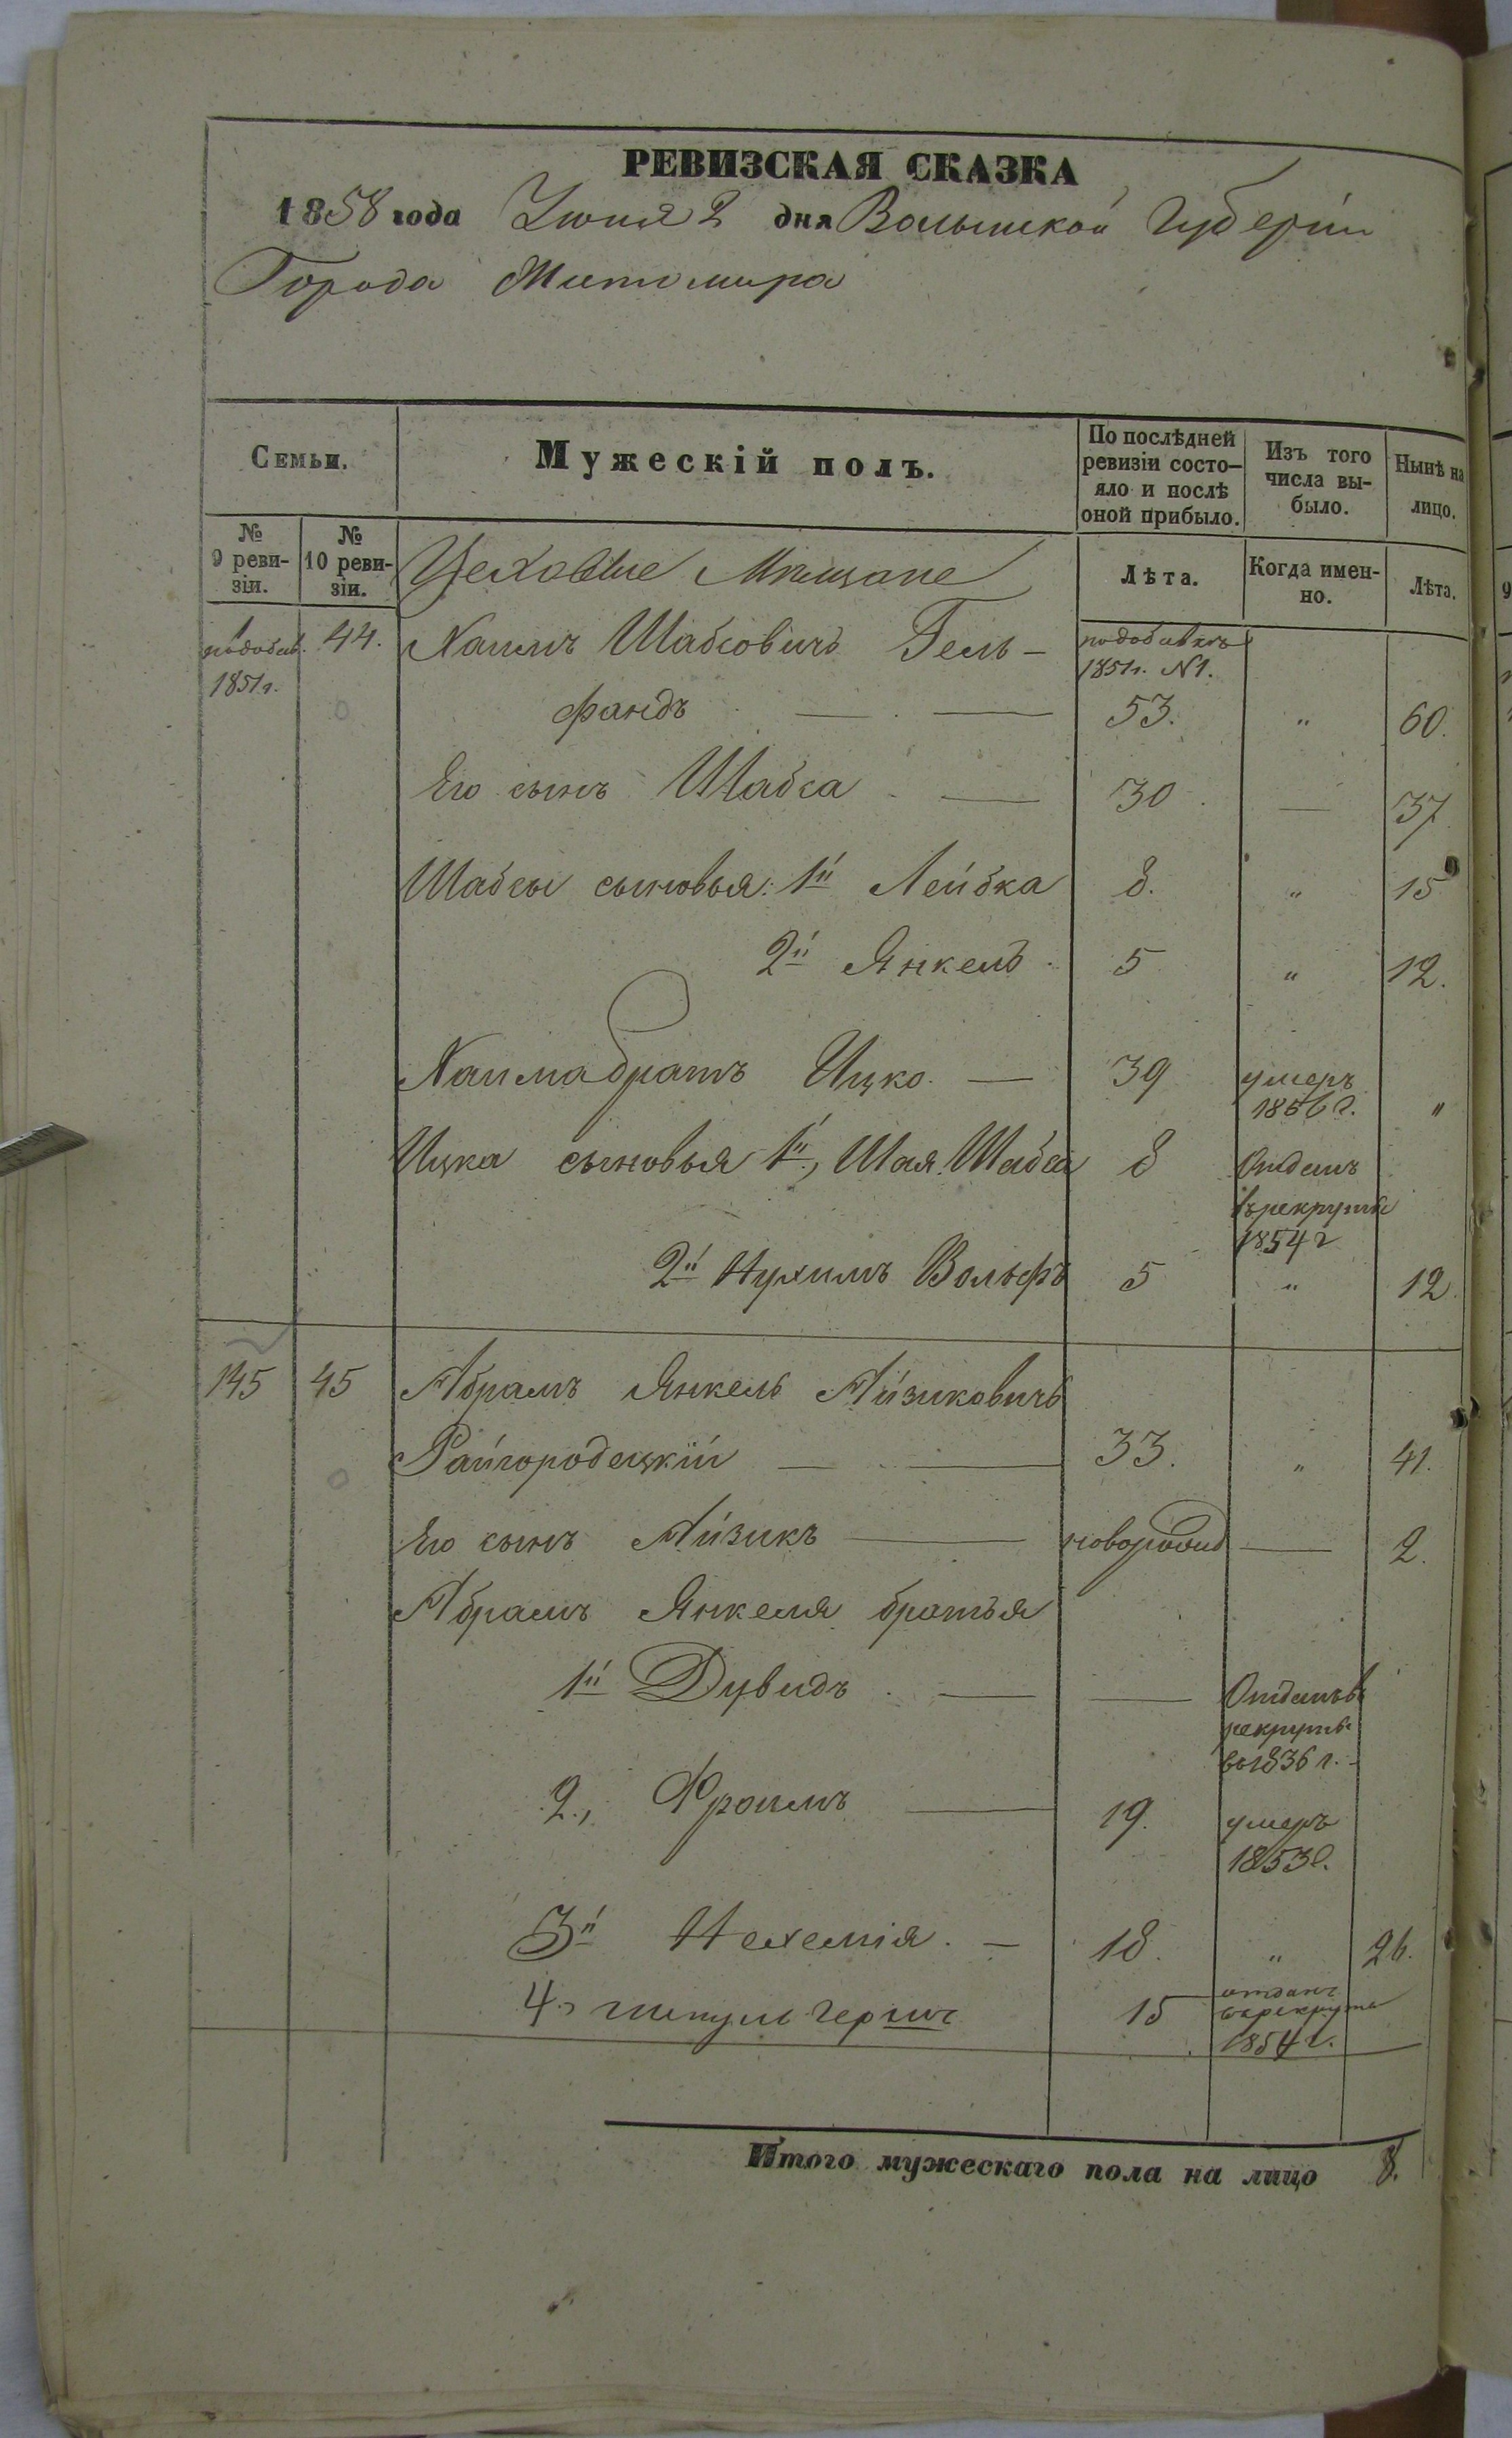 РЕВИЗСКАЯ СКАЗКА
1858 года Іюня 2 дня Волынской Губерніи
Города Житомира
Семьи.
Мужескій полъ.
По послѣдней ревизіи состо-яло и послѣ оной прибыло.
Изъ того числа вы-было.
Нынѣ на лицо.
№ 9 реви-зіи.
№ 10 реви-зіи.
Цеховые Мѣщане
Лѣта.
Когда имен-но.
Лѣта.
1851г.
44. Хаимъ Шабсовичъ Гель-
1851г. №1.
фандъ — — 53. " 60.
Его сынъ Шабса — 30. — 37
Шабсы сыновья: 1й Лейбка 8. " 15
2й Янкель 5 " 12.
Хаима братъ Ицко — 39 умеръ 1856г. "
Ицка сыновья 1й, Шая Шабса 8 Отданъ
въ рекруты
1854г
2й Нухимъ Вольфъ 5 " 12.
145 45 Абрамъ Янкель Айзиковичъ
Райгородецкій — — 33. " 41.
Его сынъ Айзикъ — новорожд — 2.
Абрамъ Янкеля братья
1й Дувидъ — — Отданъ въ
рекруты
въ 1836 г.
2., Фроимъ — 19. умеръ
1853г.
3й Нехемія — 18. " 26.
4, Гершъ 15 отданъ
въ рекруты
1854г.
Итого мужескаго пола на лицо 8.